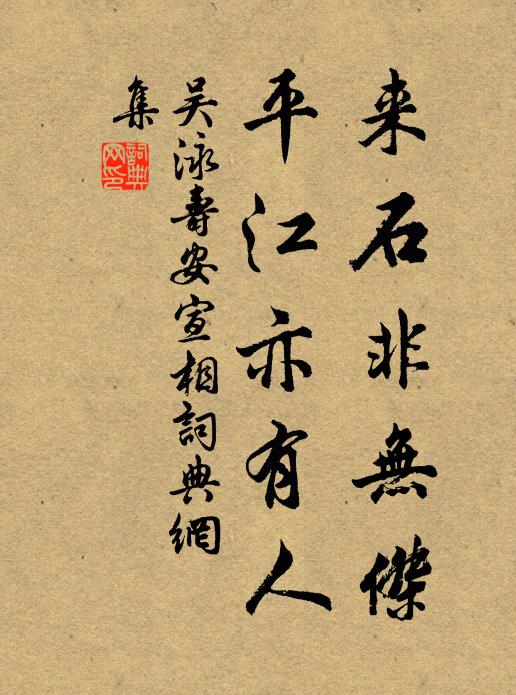 来石非無傑
平江亦有人
吴泳壽安宣相詞典網
集
詞典網印